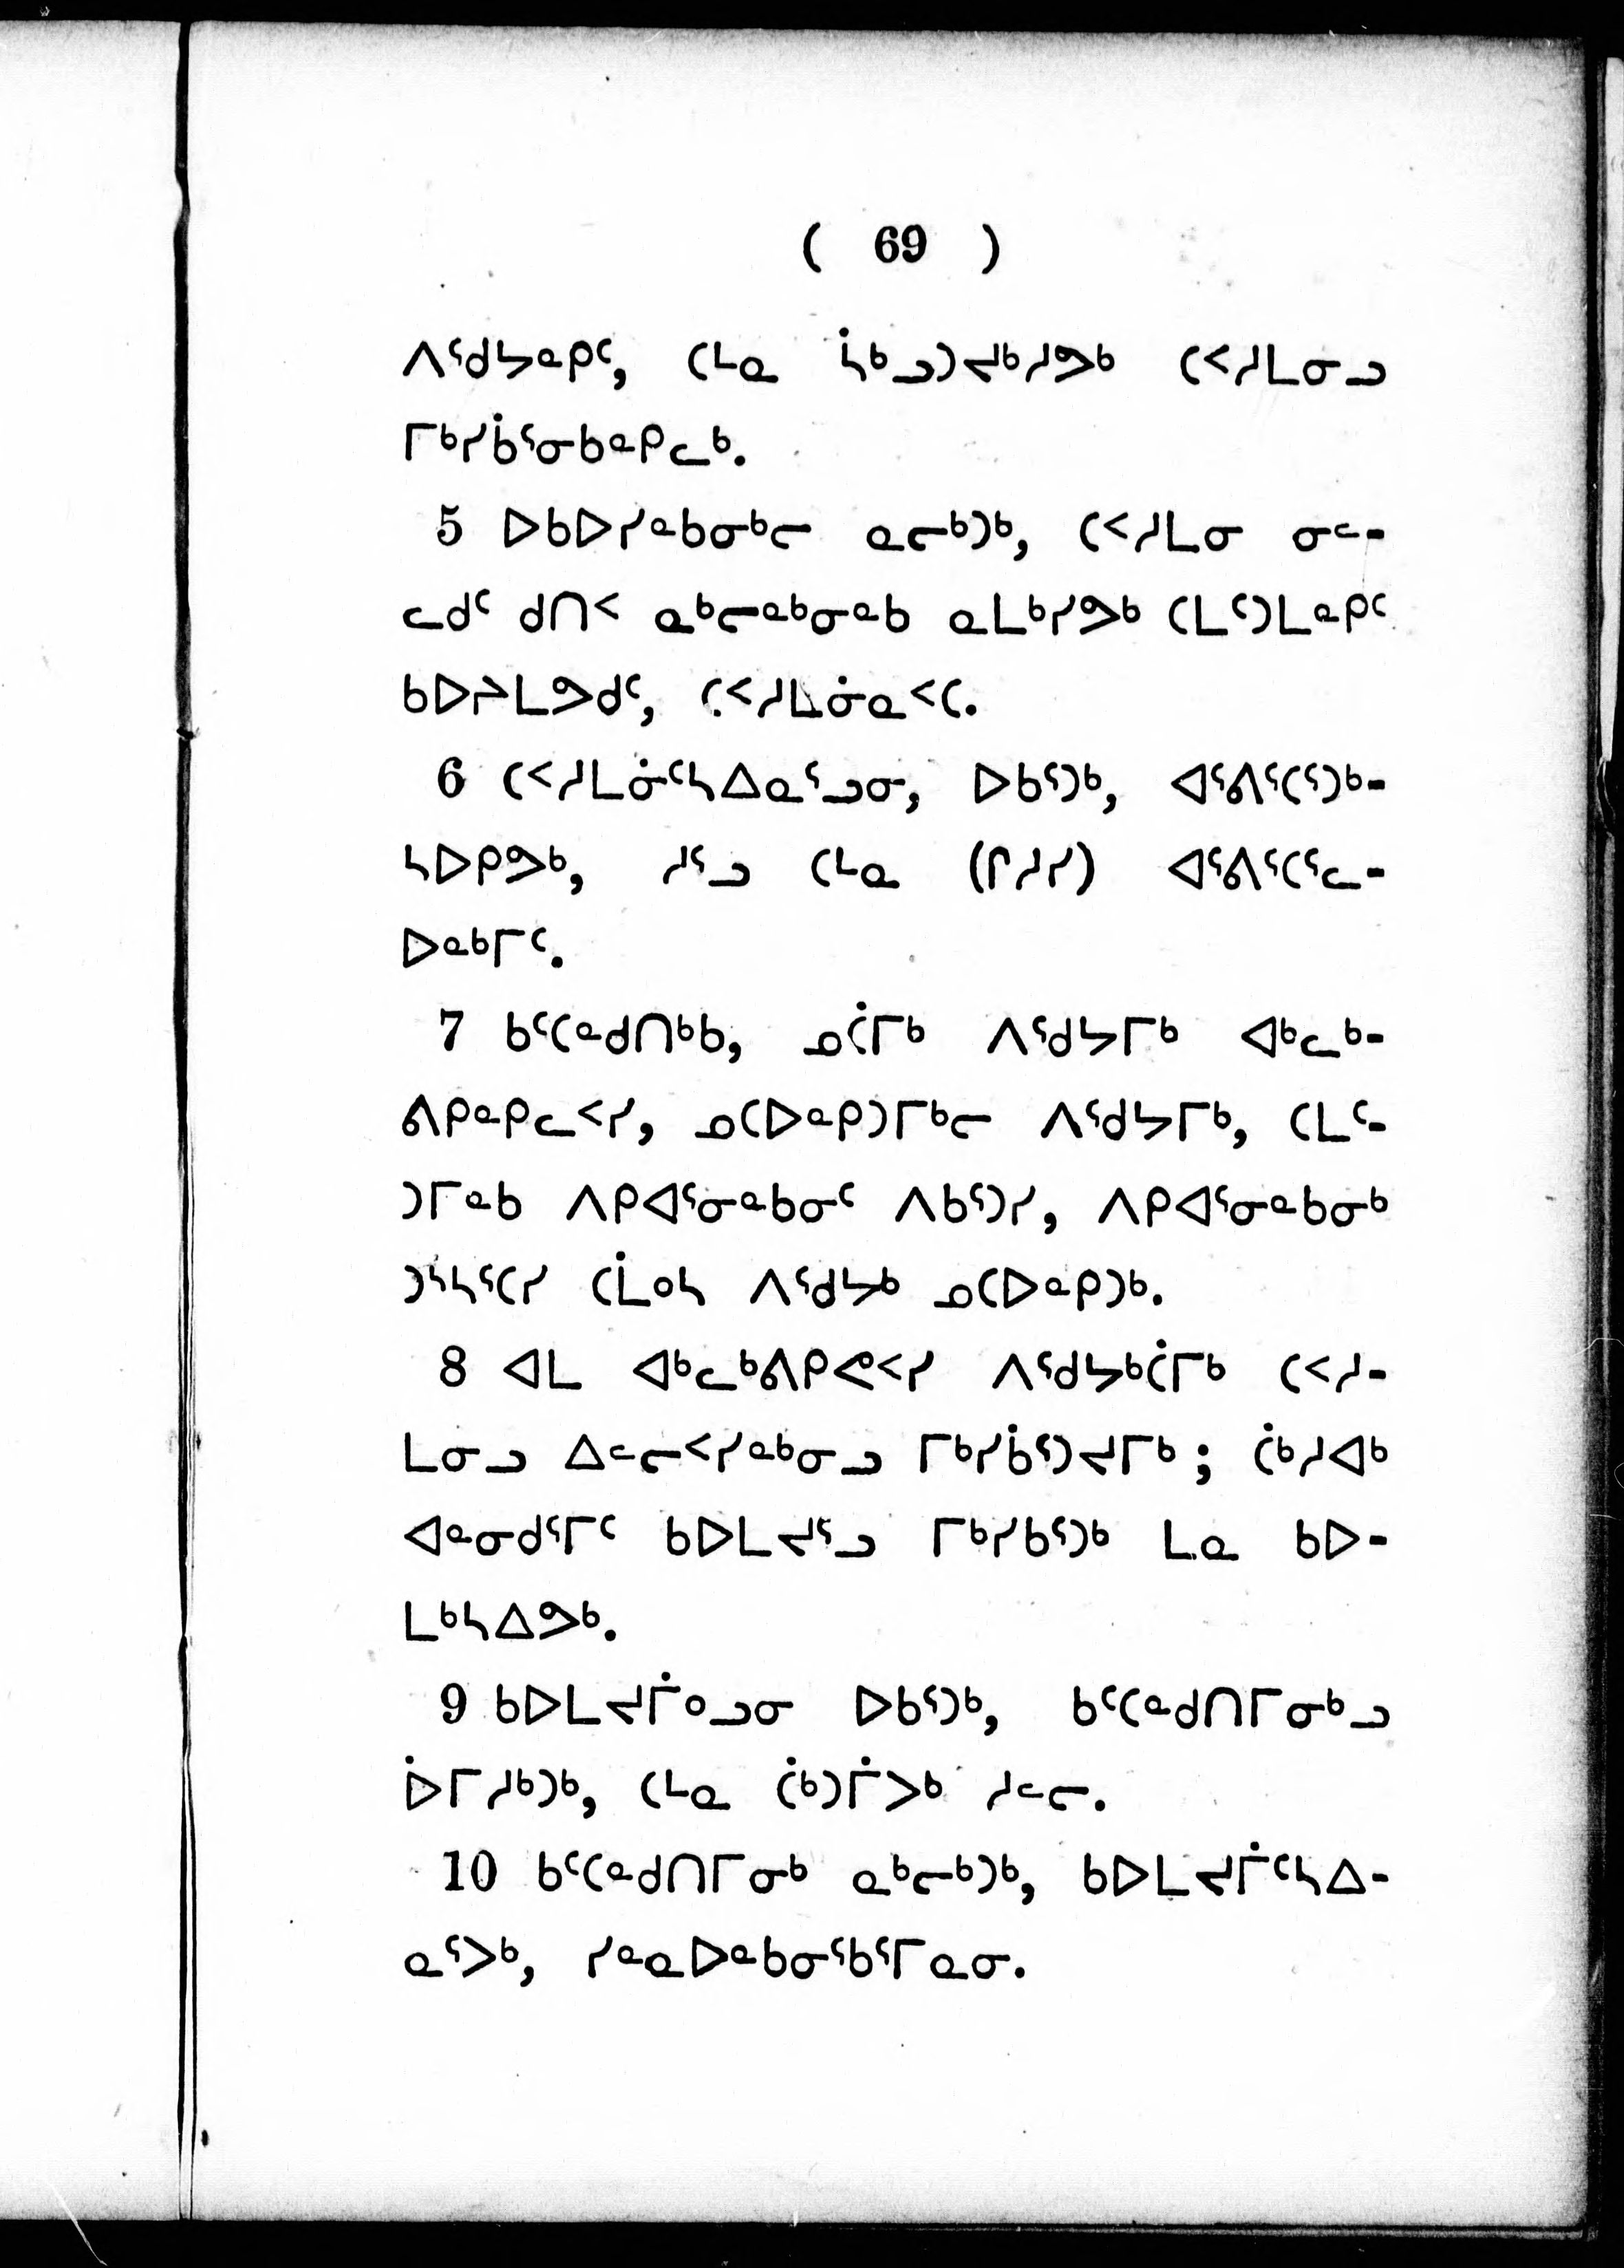 ( 69 )
ᐱᕐᑯᔭᓐᑭᑦ, ᑕᒪᓇ ᓵᒃᓗᑐᔪᒃᓱᕗᒃ ᑕᑉᓱᒪᓂᓗ
ᒥᒃᓯᑳᕐᓂᑲᓐᑭᓚᒃ.
5 ᐅᑲᐅᓯᓐᑲᓂᒃᓕ ᓇᓕᒃᑐᒃ, ᑕᑉᓱᒪᓂ ᓂᓪ-
ᓚᑯᑦ ᑯᑎᑉ ᓇᒃᓕᓐᒃᓂᓐᑲ ᓇᒪᒃᓯᕗᒃ ᑕᒪᑦᑐᒪᓐᑭᑦ
ᑲᐅᔨᒪᕗᑯᑦ, ᑕᑉᓱᒪᓃᓇᑉᑕ.
6 ᑕᑉᓱᒪᓃᑦᓴᐃᓇᕐᓗᓂ, ᐅᑲᕐᑐᒃ, ᐊᕐᕕᕐᑕᕐᑐᒃ-
ᓴᐅᑭᕗᒃ, ᓱᕐᓗ ᑕᒻᓇ (ᒋᓱᓯ) ᐊᕐᕕᕐᑕᕐᓚ-
ᐅᓐᒃᒥᑦ.
7 ᑲᑦᑕᓐᑯᑎᒃᑲ, ᓄᑖᒥᒃ ᐱᕐᑯᔭᒥᒃ ᐊᒃᓚᒃ-
ᕕᑭᓐᑭᓚᑉᓯ, ᓄᑕᐅᓐᑭᑐᒥᒃᓕ ᐱᕐᑯᔭᒥᒃ, ᑕᒪᑦ-
ᑐᒥᓐᑲ ᐱᑭᐊᕐᓂᓐᑲᓂᑦ ᐱᑲᕐᑐᓯ, ᐱᑭᐊᕐᓂᓐᑲᓂᒃ
ᑐᓴᓴᕐᑕᓯ ᑕᒫᓴ ᐱᕐᑯᔭᒃ ᓄᑕᐅᓐᑭᑐᒃ.
8 ᐊᒪ ᐊᒃᓚᒃᕕᑭᕙᑉᓯ ᐱᕐᑯᔭᒃᑖᒥᒃ ᑕᑉᓱ-
ᒪᓂᓗ ᐃᓪᓕᑉᓯᓐᒃᓂᓗ ᒥᒃᓯᑳᕐᑐᔪᒥᒃ; ᑖᒃᓱᐊᒃ
ᐊᓐᓂᑯᕐᒥᑦ ᑲᐅᒪᔪᕐᓗ ᒥᒃᓯᑲᕐᑐᒃ ᒪᓇ ᑲᐅ-
ᒪᒃᓴᐃᕗᒃ.
9 ᑲᐅᒪᔪᒦᓗᓂ ᐅᑲᕐᑐᒃ, ᑲᑦᑕᓐᑯᑎᒥᓂᒃᓗ
ᐆᒥᓱᒃᑐᒃ, ᑕᒻᓇ ᑖᒃᑐᒦᐳᒃ ᓱᓪᓕ.
10 ᑲᑦᑕᓐᑯᑎᒥᓂᒃ ᓇᒃᓕᒃᑐᒃ, ᑲᐅᒪᔪᒦᑦᓴᐃ-
ᓇᕐᐳᒃ, ᓯᓐᓇᐅᓐᑲᓂᕐᑲᕐᒥᓇᓂ.